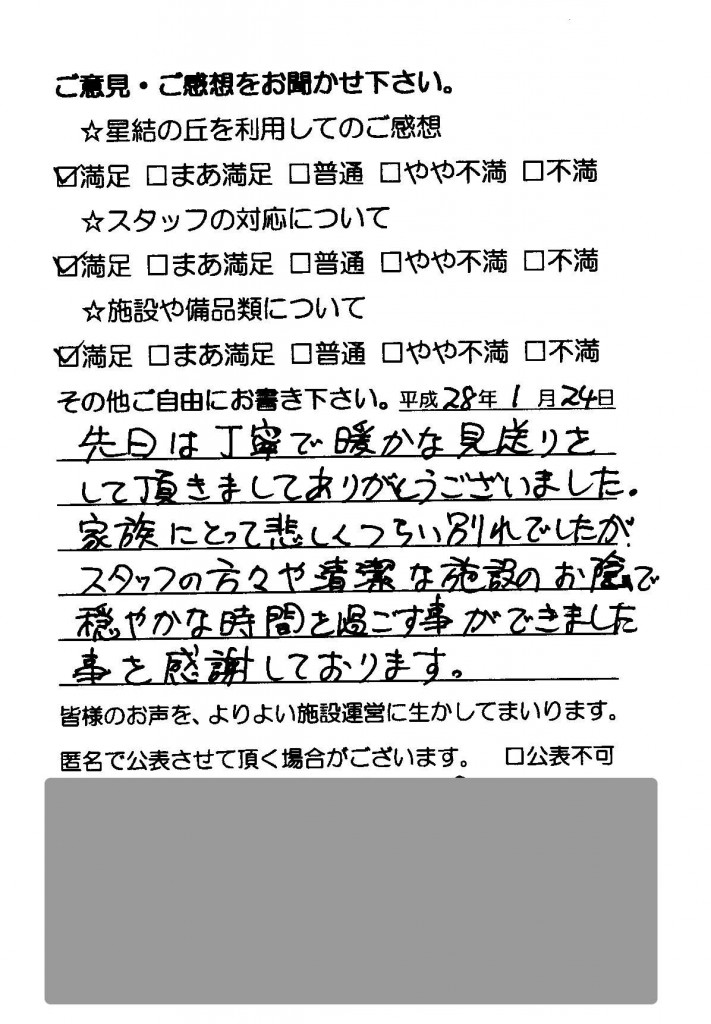 ご意見・ご感想をお聞かせ下さい。
☆星結の丘を利用してのご感想
☑満足 □まあ満足 □普通 □やや不満 □不満
☆スタッフの対応について
☑満足 □まあ満足 □普通 □やや不満 □不満
☆施設や備品類について
☑満足 □まあ満足 □普通 □やや不満 □不満
その他ご自由にお書き下さい。平成28年1月24日
先日は丁寧で暖かな見送りを
して頂きましてありがとうございました。
家族にとって悲しくつらい別れでしたが
スタッフの方々や清潔な施設のお陰で
穏やかな時間を過ごす事ができました
事を感謝しております。
皆様のお声を、よりよい施設運営に生かしてまいります。
匿名で公表させて頂く場合がございます。 □公表不可